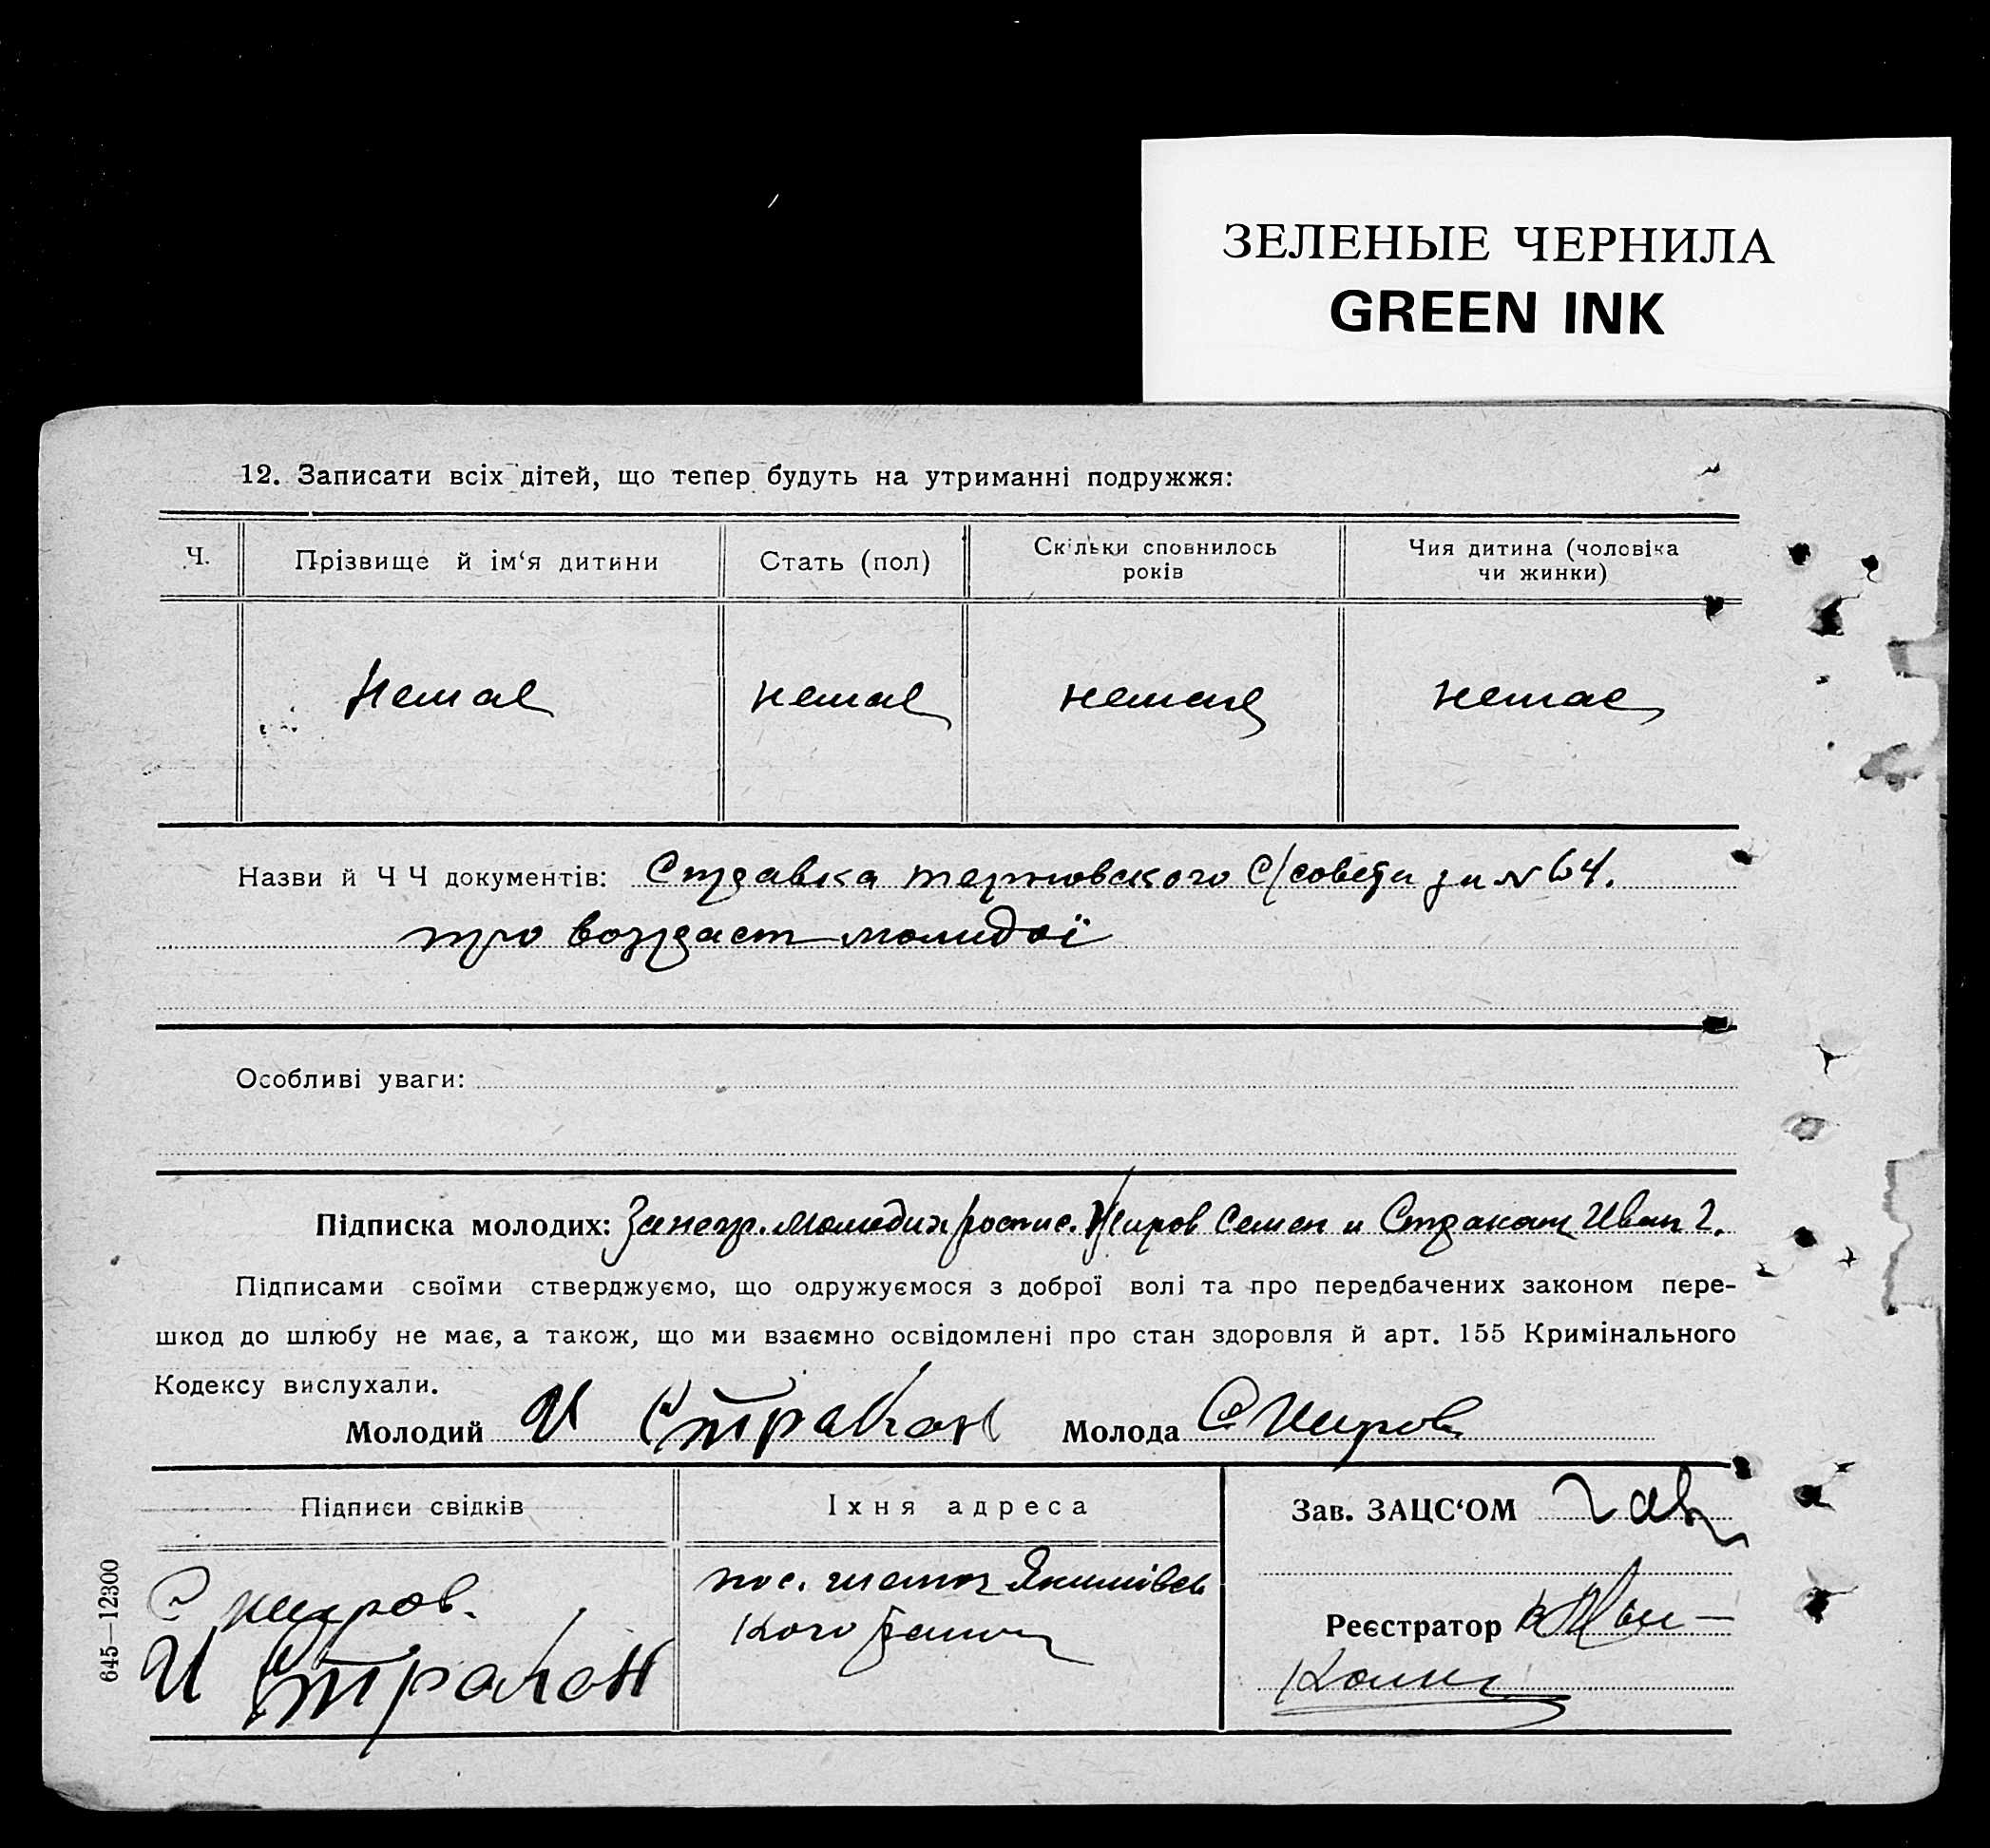 ЗЕЛЕНЫЕ ЧЕРНИЛА
GREEN INK
12. Записати всіх дітей, що тепер будуть на утриманні подружжя:
Ч. Прізвище й ім‘я дитини Стать (пол) Скільки сповнилось років Чия дитина (чоловіка чи жинки)
Немає немає немає немає
Назви й Ч Ч документів: Справка терновского С/совета за № 64.
про возраст молодої
Особливі уваги:
Підписка молодих: За негр. молодих роспис. Жиров Семен и Стракан Иван Г.
Підписами своїми стверджуємо, що одружуємося з доброї волі та про передбачених законом пере-
шкод до шлюбу не має, а також, що ми взаємно освідомлені про стан здоровля й арт. 155 Кримінального
Кодексу вислухали.
Молодий И Стракан Молода С Жиров
Підписи свідків Їхня адреса Зав. ЗАЦС‘ОМ
С жиров. пос. Якимівсь
И Стракан кого району Реєстратор
645—12300